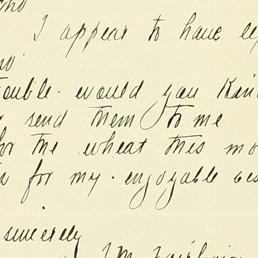 I appear to have le
trouble. would you kin
send them to me
for the wheat this mo
for my enjoyable
sincerely